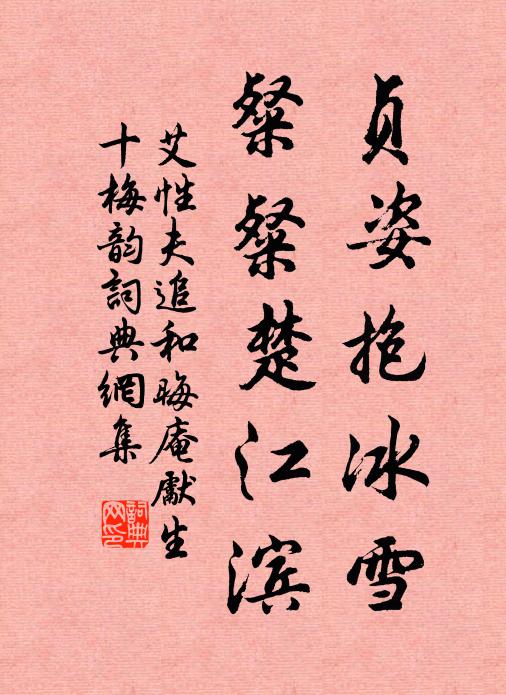 贞姿抱冰雪
粲粲楚江滨
艾性夫追和晦庵献生
十梅韵词典網集
詞典
网印